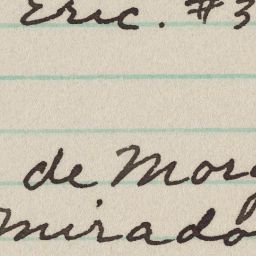 Eric. #3
de Morg
mirado